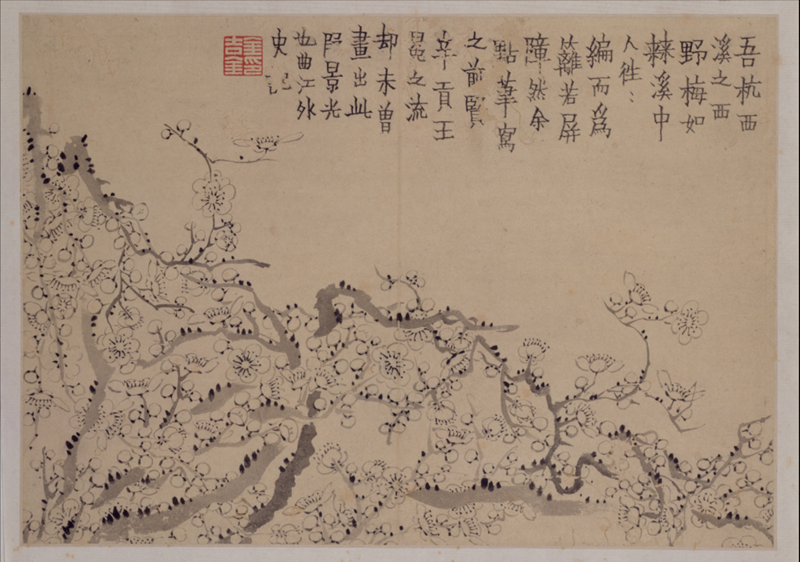 吾杭西
溪之西
野梅如
棘溪中
人徃〻
編而為
籬若屏
障然余
點筆寫
之前賢
辛貢王
冕之流
却未曾
畫出此
段景光
也曲江外
史記